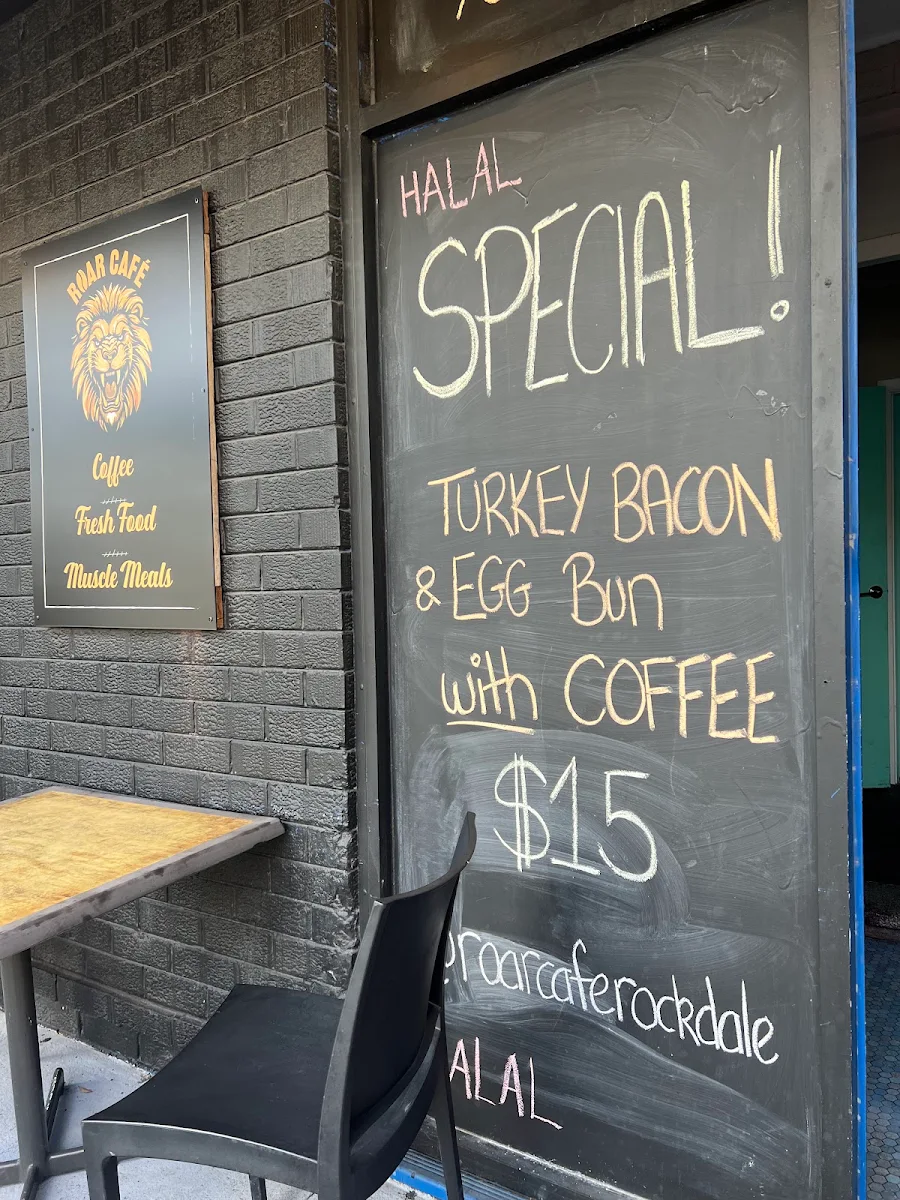 ROAR CAFÉ
Coffee
Fresh Food
Muscle Meals
HALAL
SPECIAL!
TURKEY BACON
& EGG Bun
with COFFEE
$15
@roarcaferockdale
ALAL